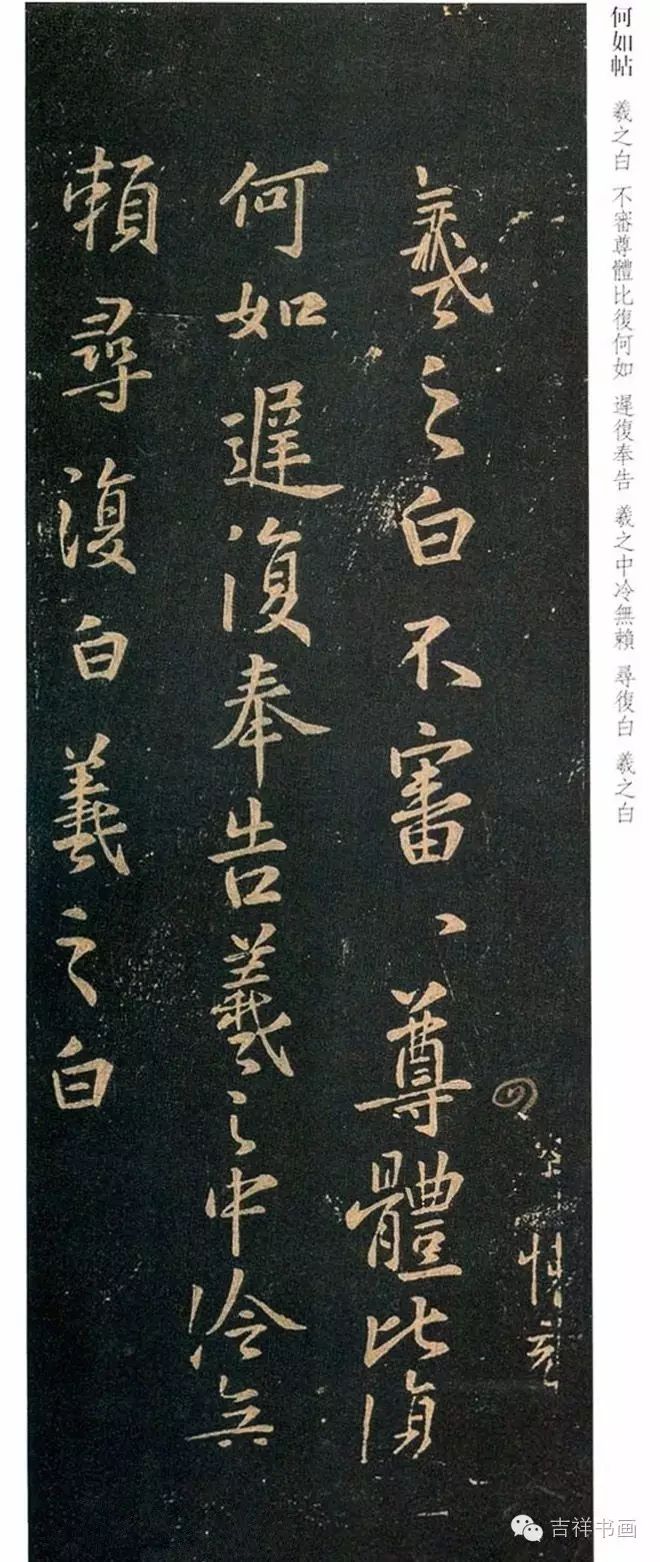 何如帖 羲之白 不審尊體比復何如 遲復奉告 羲之中冷無賴 尋復白 羲之白
羲之白不審、尊體比復
何如遲復奉告羲之中冷無
賴尋復白羲之白
吉祥书画